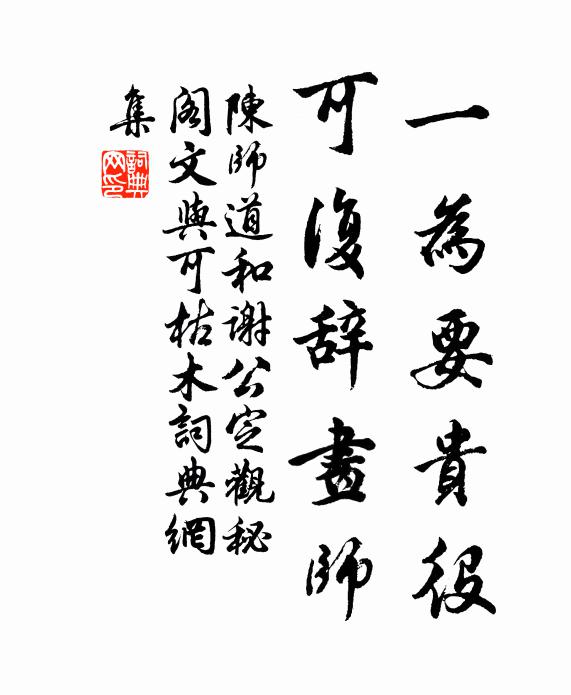 一為要貴役
可復辞畫師
陳師道和謝公定觀秘
閣文與可枯木詞典網
集
詞典
网印